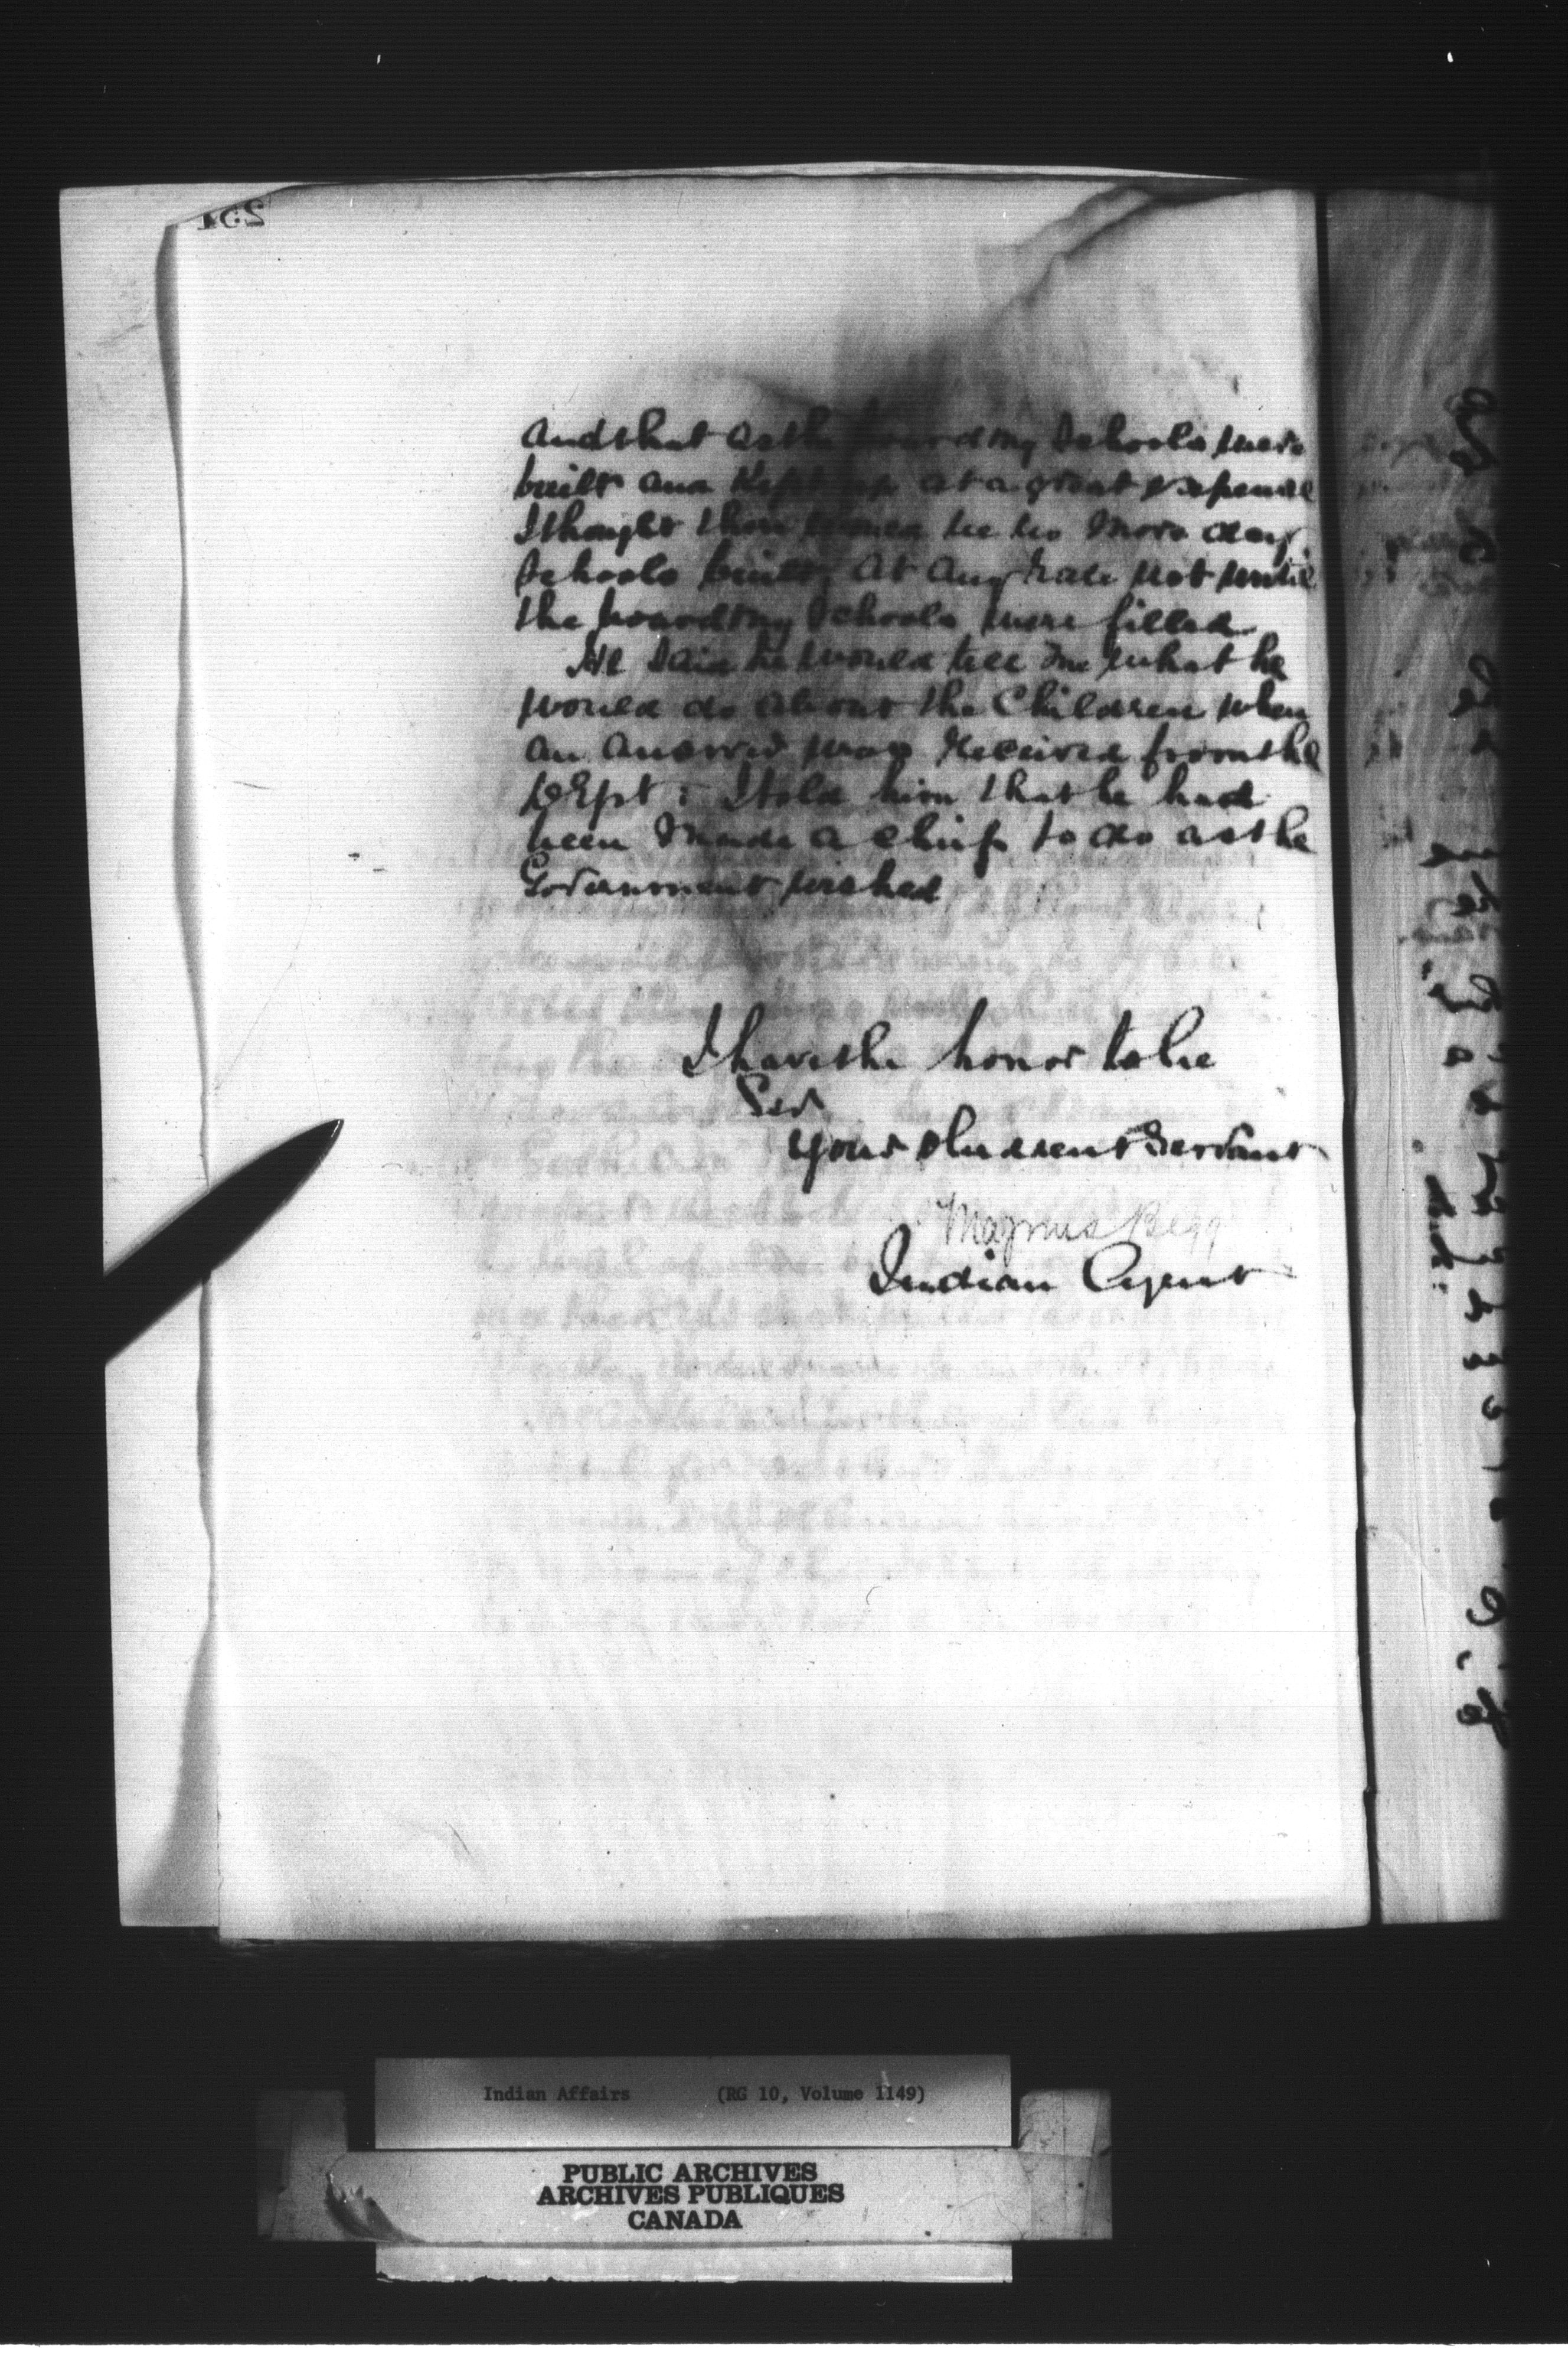 and that as the boarding Schools were
built and Kept up at a great expense
I thought there would be no more day
Schools built, at any rate not until
the boarding Schools were filled
He said he would tell me what he
would do about the Children when
an answer was received from the
Dept: I told him that he had
been made a chief to do as the
Government wished
I have the honor to be
Sir
your obedient Servant
Magnus Begg
Indian Agent
Indian Affairs (RG 10, Volume 1149)
PUBLIC ARCHIVES
ARCHIVES PUBLIQUES
CANADA